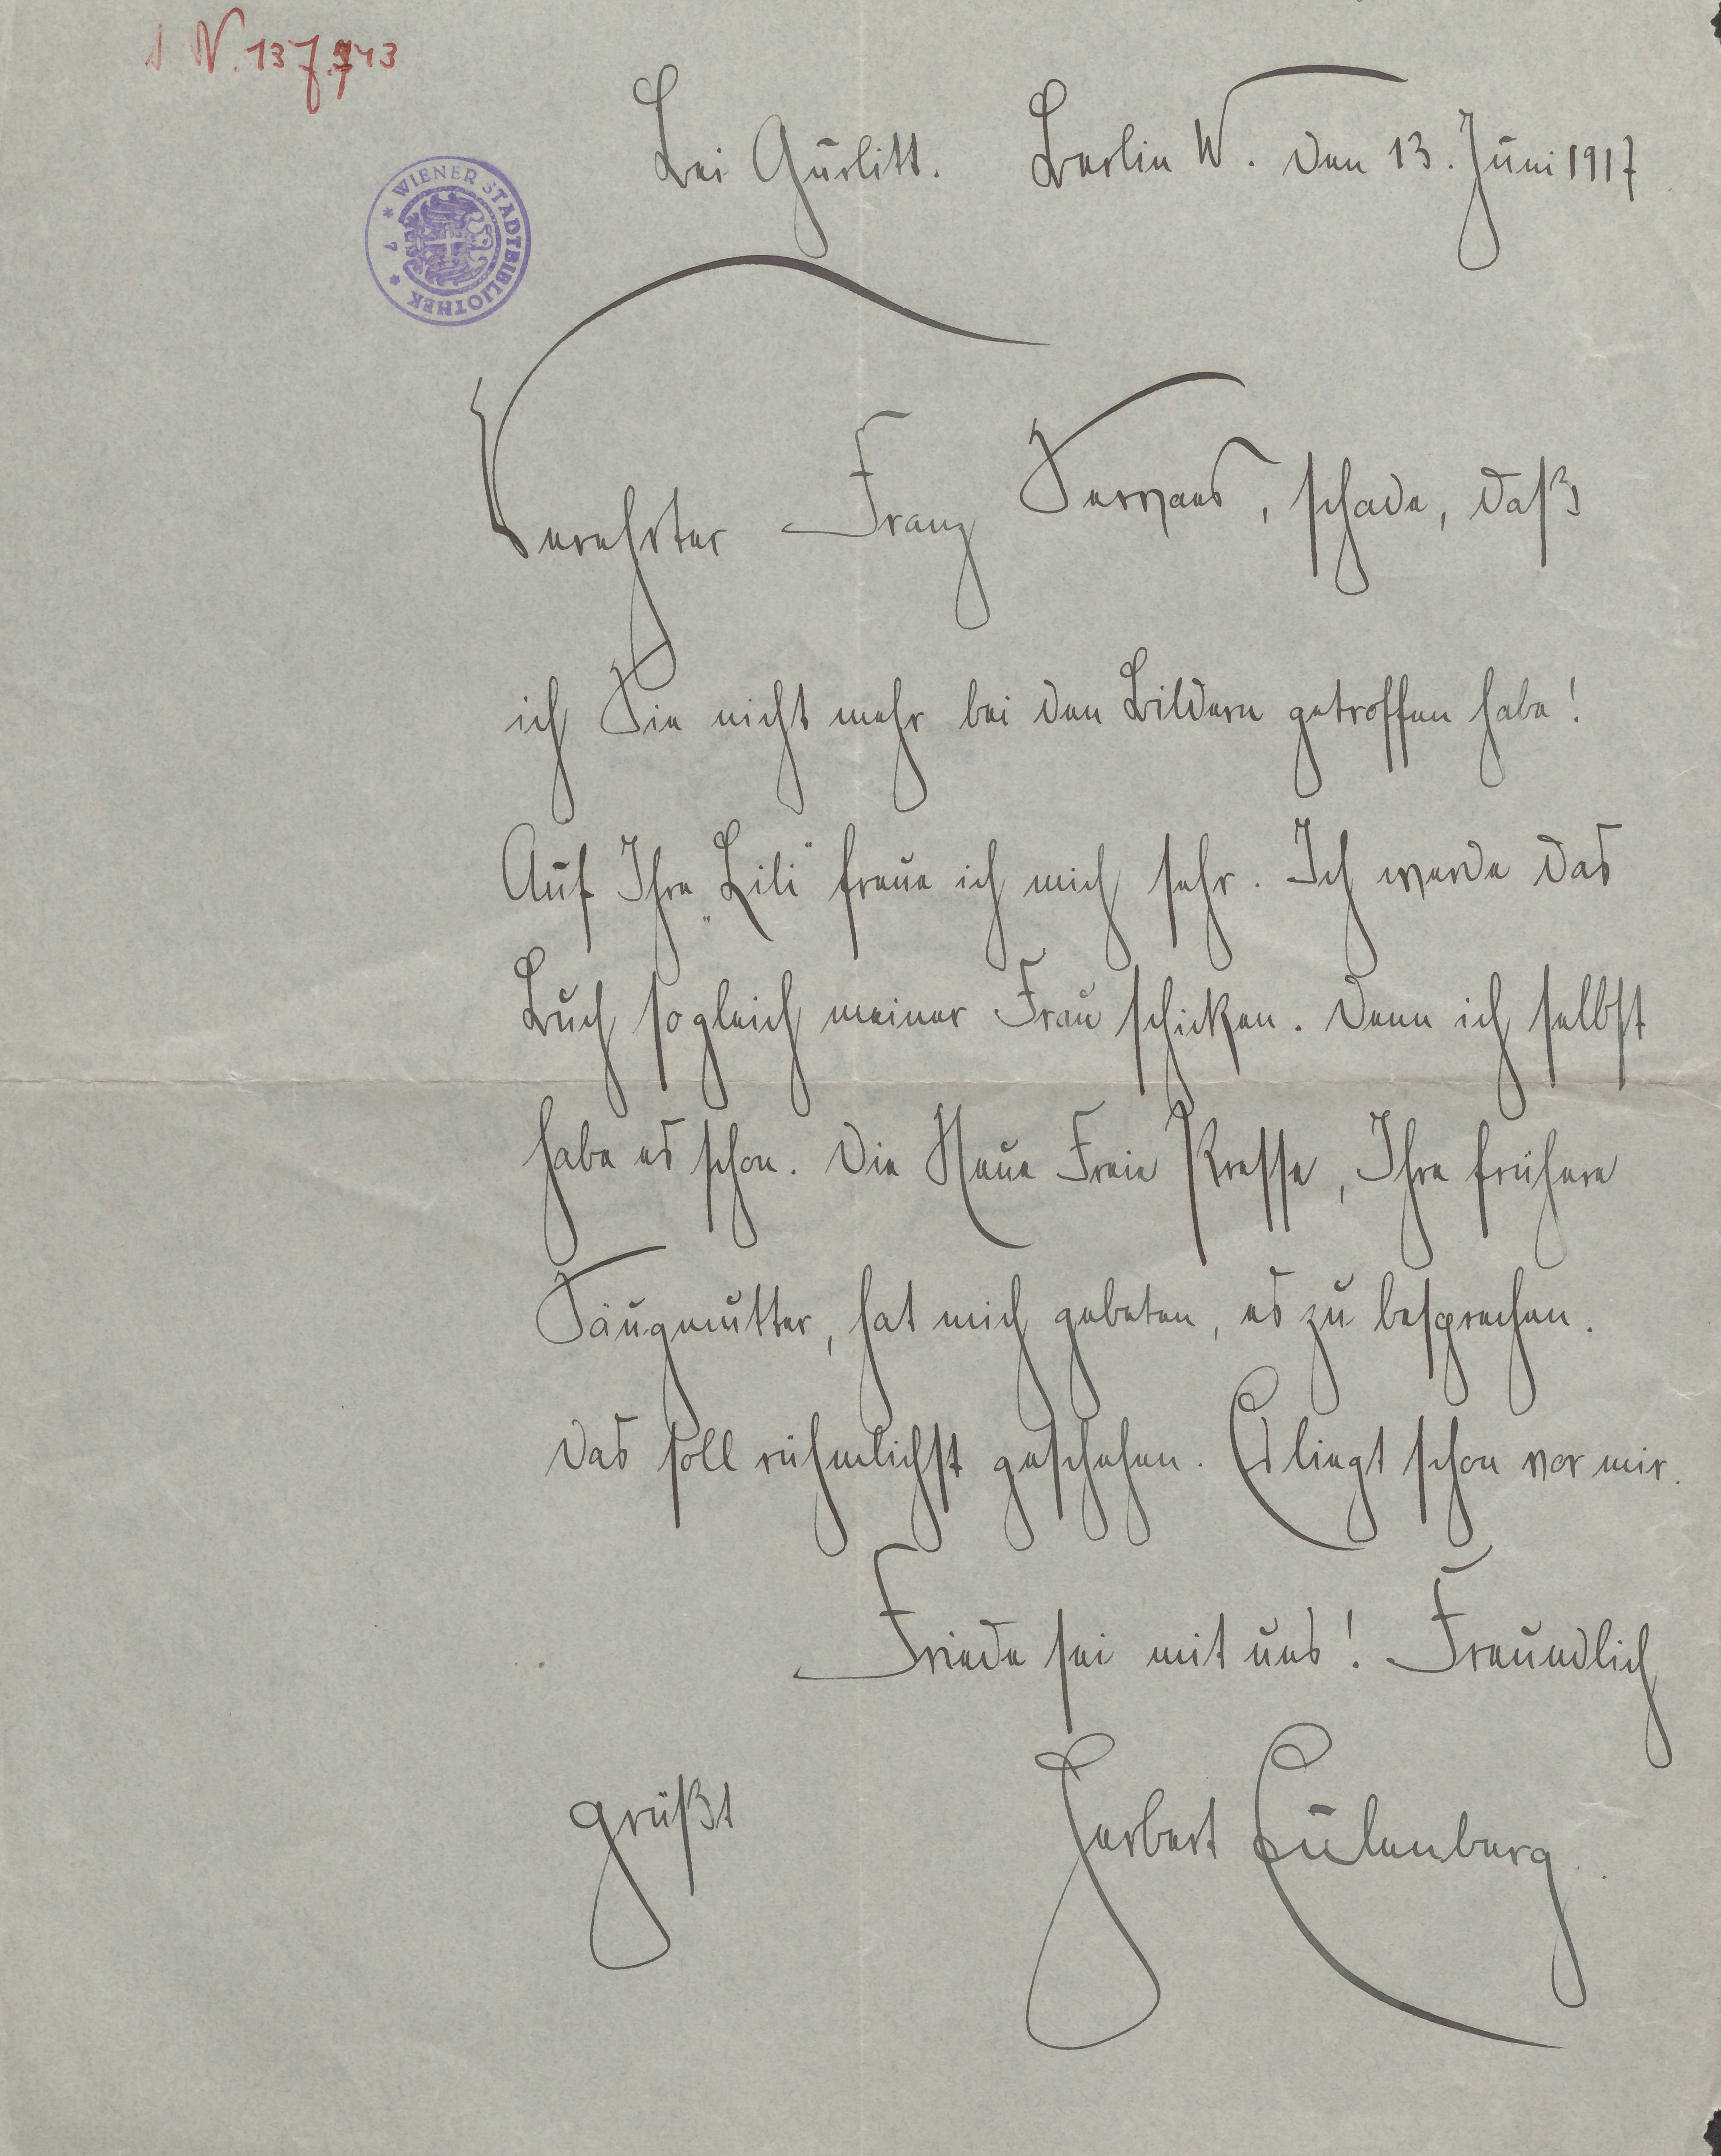 I N. 137.743
WIENER STADTBIBLIOTHEK
Bei Gurlitt. Berlin W. den 13. Juni 1917
Verehrter Franz Servaes, schade, daß
ich Sie nicht mehr bei den Bildern getroffen habe!
Auf Ihre „Lili“ freue ich mich sehr. Ich werde das
Buch sogleich meiner Frau schicken. Denn ich selbst
habe es schon. Die Neue Freie Presse, Ihre frühere
Säugmutter, hat mich gebeten, es zu besprechen.
Das soll rühmlichst geschehen. Es liegt schon vor mir.
Friede sei mit uns! Freundlich
grüßt Herbert Eulenberg.